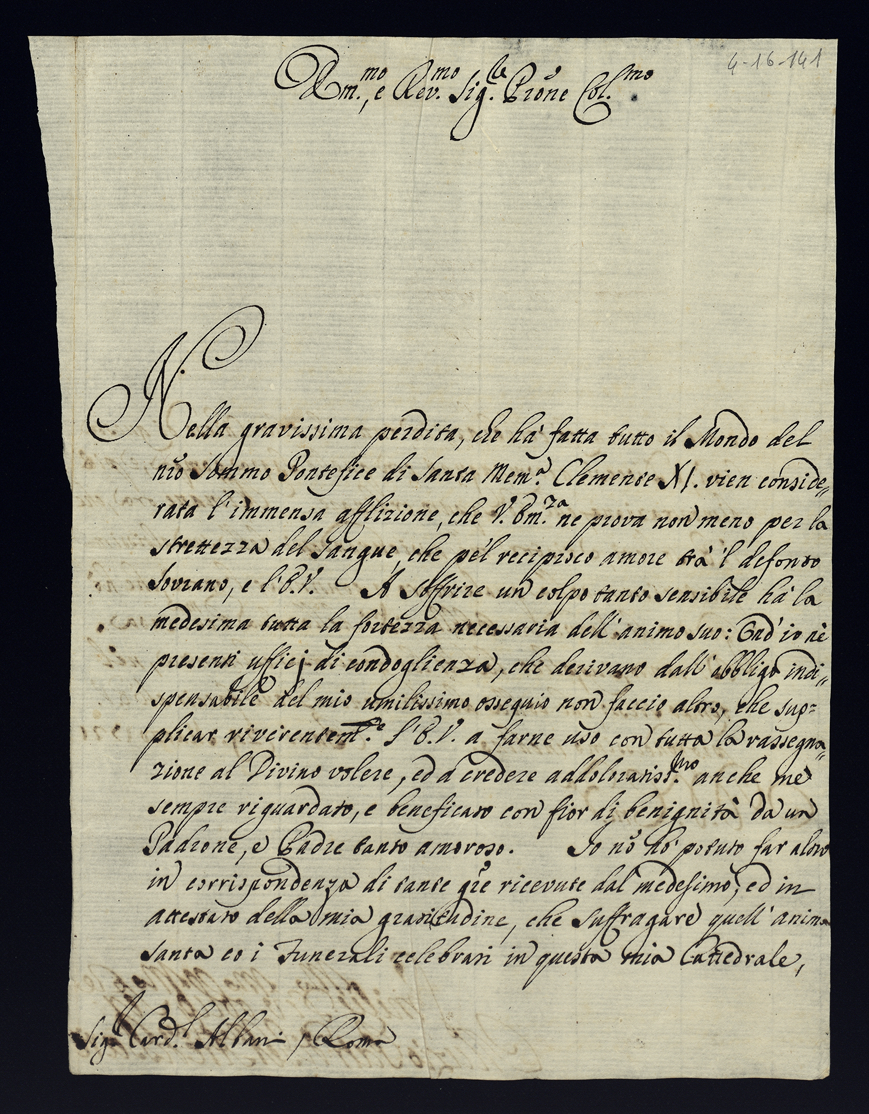 4-16-141
Em.mo, e Rev.mo Sig.re Prõne Col.mo
Nella gravissima perdita, che hà fatta tutto il Mondo del
nr̃o Sommo Pontefice di Santa Mem.a Clemente XI. vien conside„
rata l'immensa afflizione, che V. Em.za ne prova non meno per la
strettezza del sangue, che pe'l recipisco amore trà 'l defonto
Sovrano, e l'E.V. A soffrire un colpo tanto sensibile hà la
medesima tutta la fortezza necessaria dell'animo suo: Ond'io nè
presenti ufficj di condoglienza, che derivano dall'obbligo indi„
spensabile del mio umilissimo ossequio non faccio altro, che sup=
plicar riverentem.te l'E.V. a farne uso con tutta la rassegna„
zione al Divino volere, ed a credere addoloratiss.mo anche me
sempre riguardato, e beneficato con fior di benignità da un
Padrone, e Padre tanto amoroso. Io nõ hò potuto far altro
in corrispondenza di tante grẽ ricevute dal medesimo, ed in
attestato della mia gratitudine, che suffragare quell'anima
santa co i Funerali celebrati in questa mia Cattedrale,
Sig.r Card.l Albani / Roma